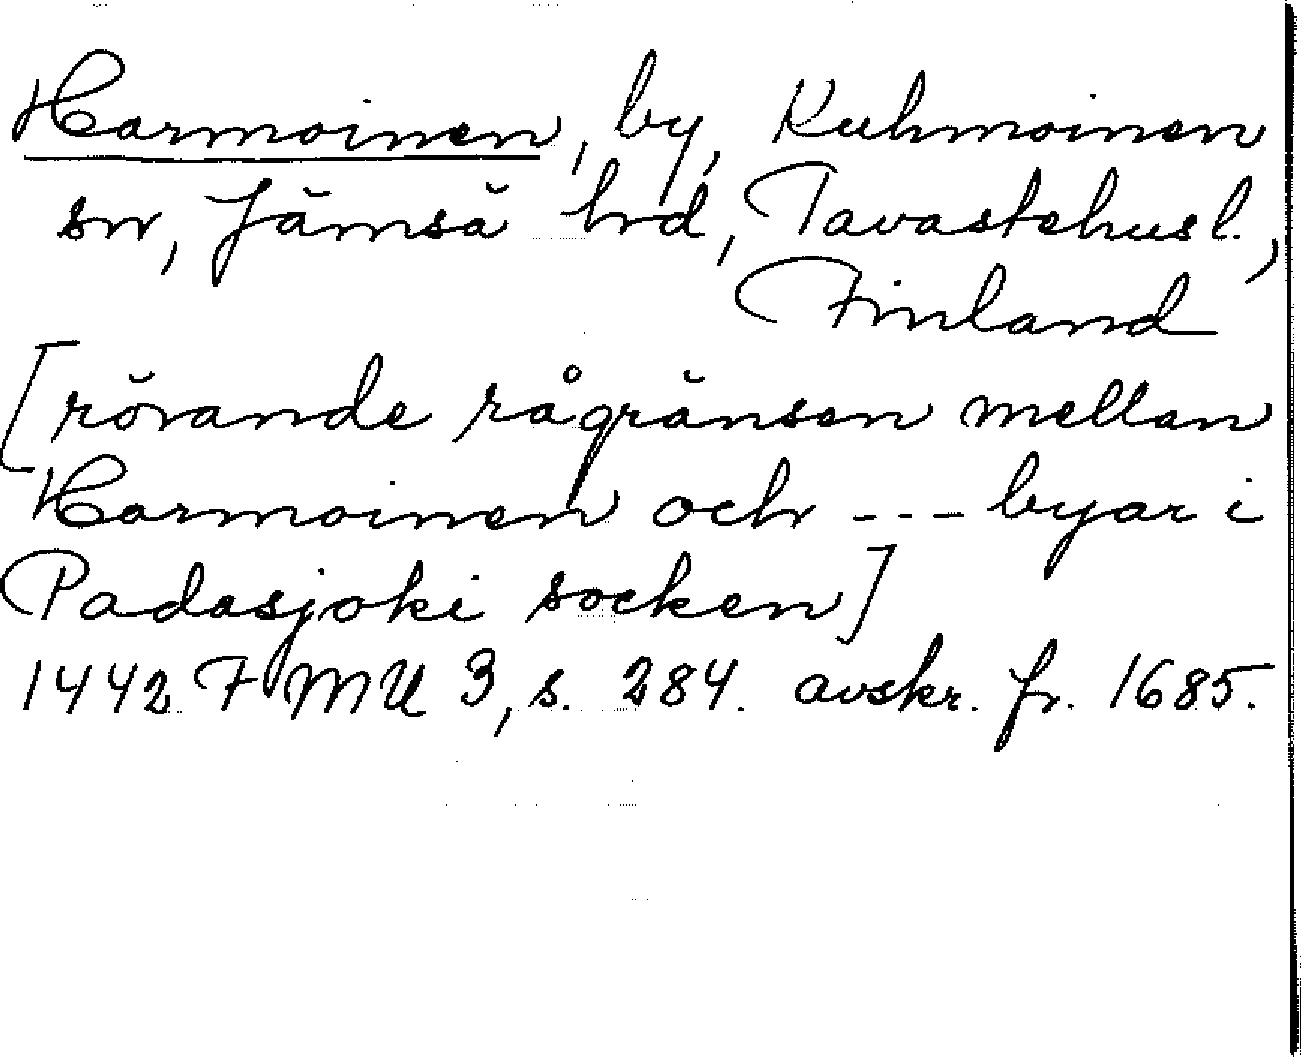 Harmoinen, by, Kuhmoinen
sn, Jämsä hrd, Tavastehus l.,
Finland
[rörande rågränsen mellan
Harmoinen och --- byar i
Padasjoki socken]
1442 FMU 3, s. 284. avskr. fr. 1685.